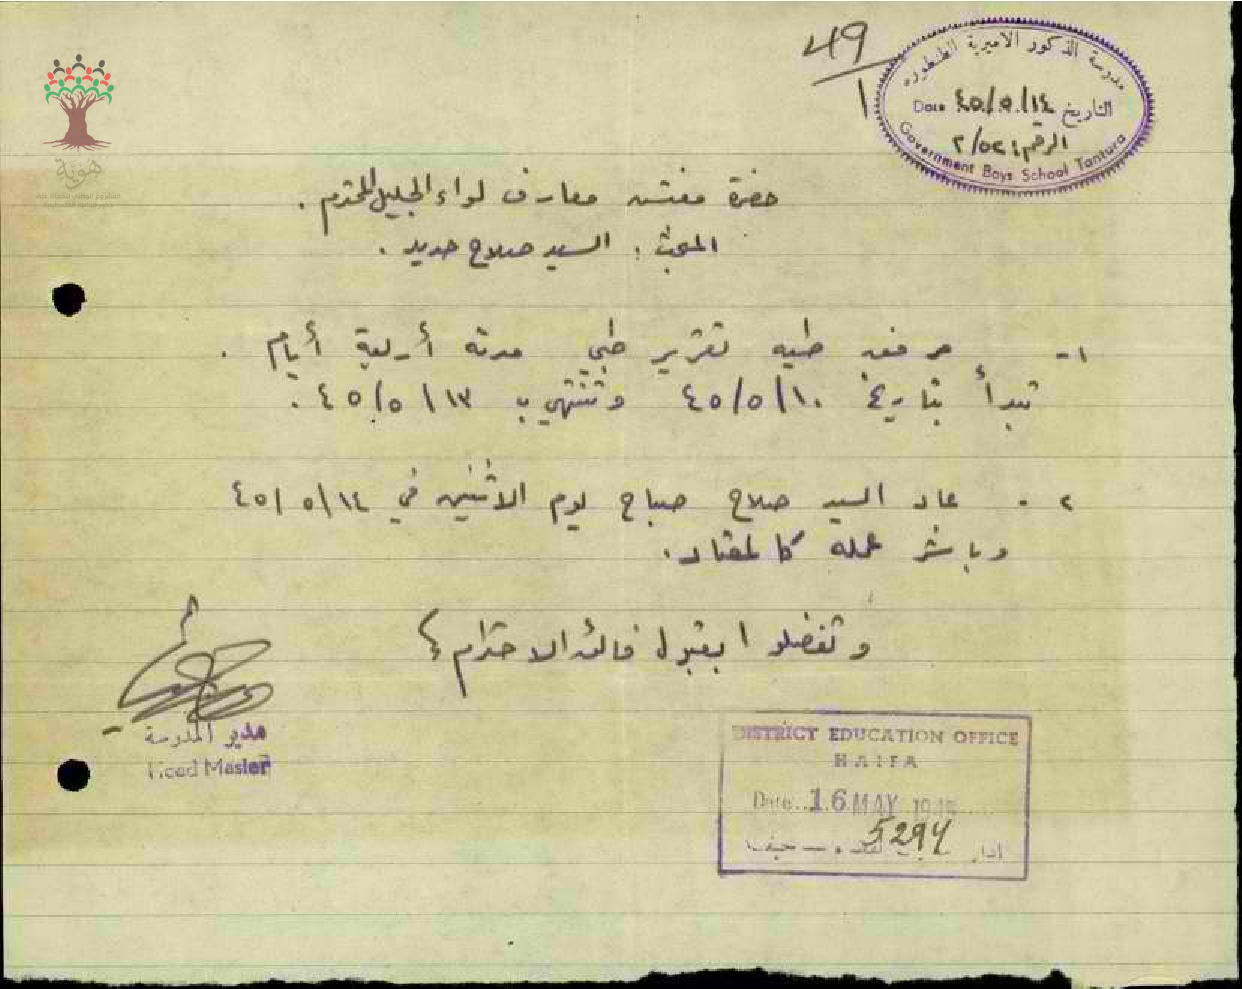 49
1
مدرسة الذكور الاميرية الطنطوره
Date ٤٥/٥/١٤ التاريخ
الرقم
Government Boys School Tantura
هوية
حضرة مفتش معارف لواء الجليل المحترم .
المبحث : السيد صلاح حديد .
١- مرفق طيه تقرير طبي مدته أربعة أيام .
تبدأ بتاريخ ٤٥/٥/١٠ وتنتهي ب ٤٥/٥/١٣ .
٢ - عاد السيد صلاح صباح يوم الاثنين في ٤٥/٥/١٤
وباشر عمله كالمعتاد .
وتفضلوا بقبول فائق الاحترام
مدير المدرسة
Head Master
DISTRICT EDUCATION OFFICE
HAIFA
Date.. 16 MAY 1945
5294